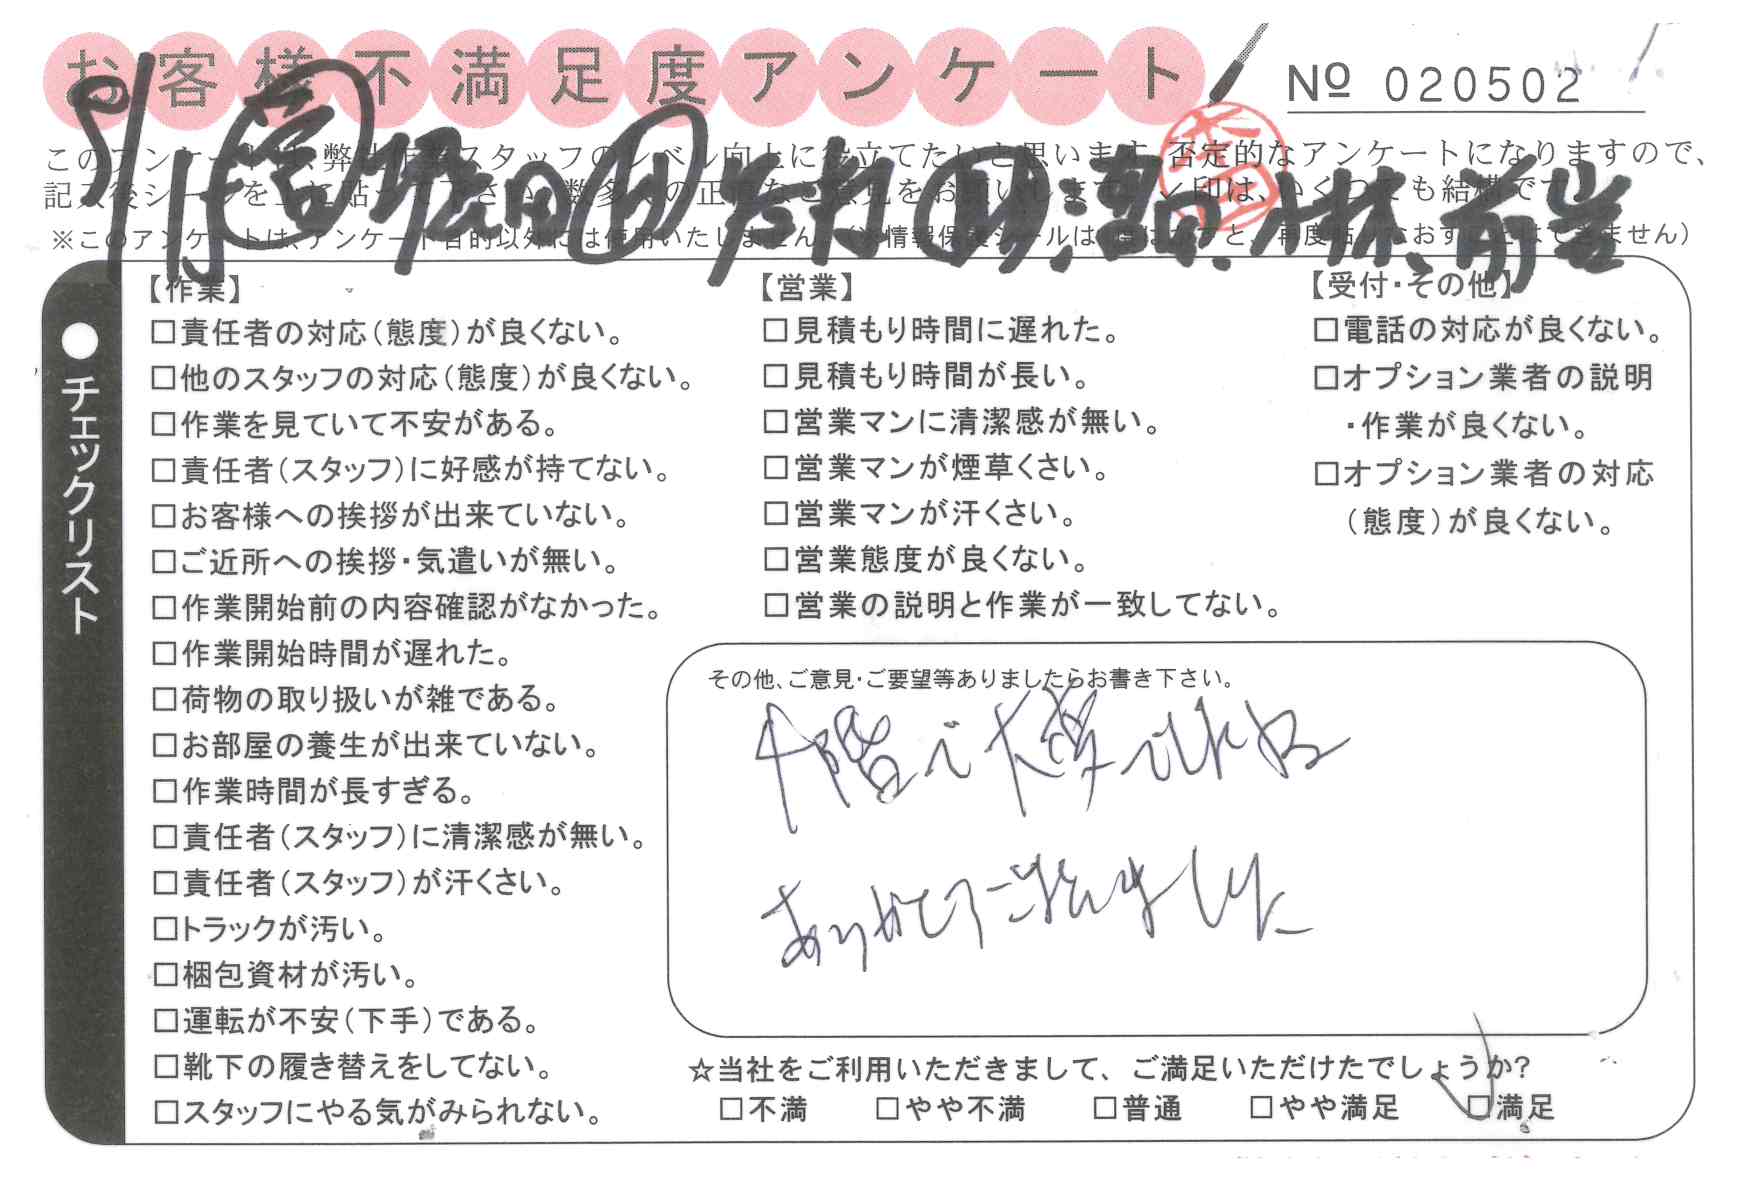 お客様不満足度アンケート
№ 020502
このアンケートは、弊社作業スタッフのレベル向上に役立てたいと思います。否定的なアンケートになりますので、
記入後シールを上に貼って下さい。数多くの正直なご意見をお願いします。レ印は、いくつでも結構です。
※このアンケートは、アンケート目的以外には使用いたしません。(※情報保護シールは1度はがすと、再度貼りなおすことはできません)
8/18 営 堀田 田 志村 助 小林、前岩
チェックリスト
【作業】
□責任者の対応(態度)が良くない。
□他のスタッフの対応(態度)が良くない。
□作業を見ていて不安がある。
□責任者(スタッフ)に好感が持てない。
□お客様への挨拶が出来ていない。
□ご近所への挨拶・気遣いが無い。
□作業開始前の内容確認がなかった。
□作業開始時間が遅れた。
□荷物の取り扱いが雑である。
□お部屋の養生が出来ていない。
□作業時間が長すぎる。
□責任者(スタッフ)に清潔感が無い。
□責任者(スタッフ)が汗くさい。
□トラックが汚い。
□梱包資材が汚い。
□運転が不安(下手)である。
□靴下の履き替えをしてない。
□スタッフにやる気がみられない。
【営業】
□見積もり時間に遅れた。
□見積もり時間が長い。
□営業マンに清潔感が無い。
□営業マンが煙草くさい。
□営業マンが汗くさい。
□営業態度が良くない。
□営業の説明と作業が一致してない。
【受付・その他】
□電話の対応が良くない。
□オプション業者の説明
・作業が良くない。
□オプション業者の対応
(態度)が良くない。
その他、ご意見・ご要望等ありましたらお書き下さい。
4階で大変でしたね
ありがとうございました
☆当社をご利用いただきまして、ご満足いただけたでしょうか?
□不満 □やや不満 □普通 □やや満足 □満足